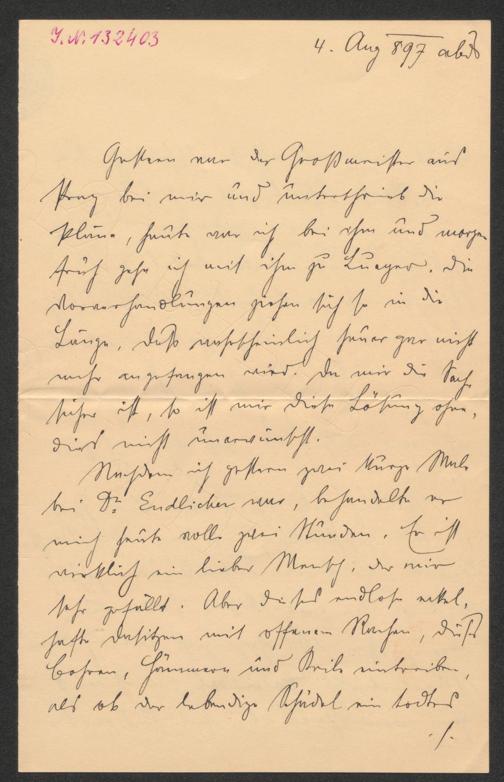 J. N. 132403
4. Aug 897 abds
Gestern war der Großmeister aus
Prag bei mir und unterschrieb die
Pläne, heute war ich bei ihm und morgen
früh gehe ich mit ihm zu Lueger. Die
Vorverhandlungen ziehen sich so in die
Länge, daß wahrscheinlich heuer gar nicht
mehr angefangen wird. Da mir die Sache
sicher ist, so ist mir diese Lösung ohne-
dies nicht unerwünscht.
Nachdem ich gestern zwei kurze Male
bei Dr. Endlicher war, behandelte er
mich heute volle zwei Stunden. Er ist
wirklich ein lieber Mensch, der mir
sehr gefällt. Aber dieses endlose ekel-
hafte Dasitzen mit offenem Rachen, dieses
Bohren, Hämmern und Keile eintreiben,
als ob der lebendige Schädel ein todtes
./.